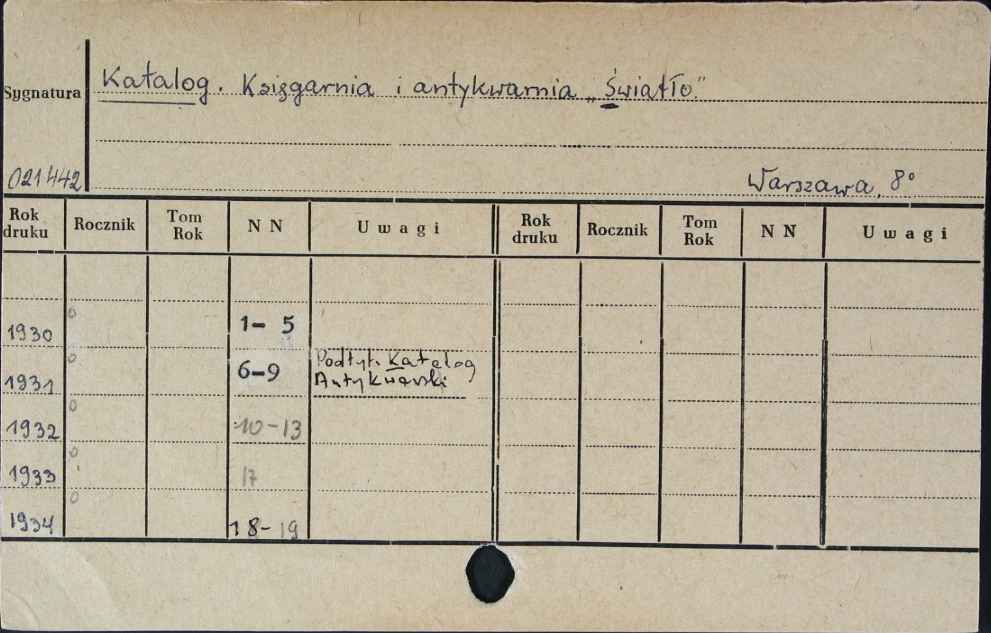 Sygnatura
Katalog. Księgarnia i antykwarnia „Światło."
021442
Warszawa, 8°
Rok druku Rocznik Tom Rok N N Uwagi Rok druku Rocznik Tom Rok N N Uwagi
1930 0 1-5
1931 0 6-9 Podtyt. Katalog
Antykwarski
1932 0 10-13
1933 0 17
1934 0 18-19